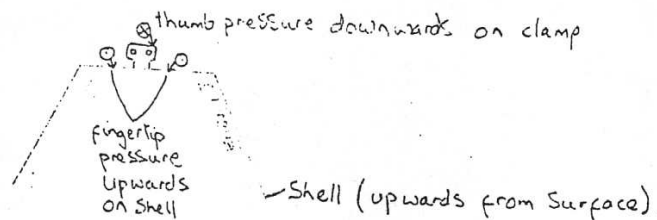 thumb pressure downwards on clamp
fingertip
pressure
upwards
on shell
Shell (upwards from Surface)